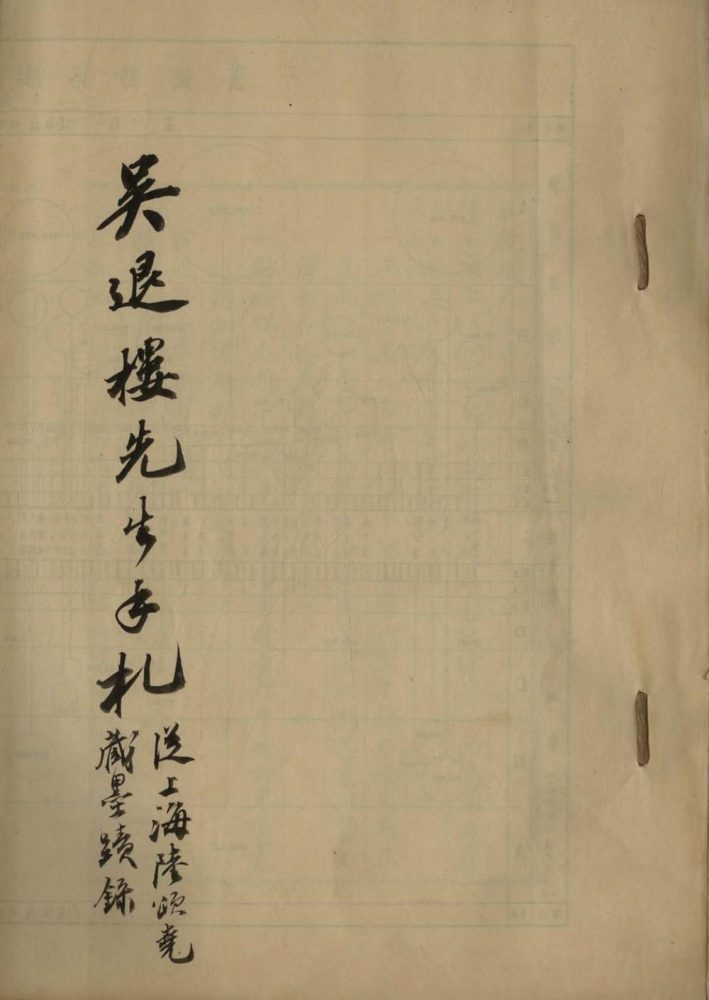 吴退樓先生手札
從上海陸頌堯
藏墨蹟錄